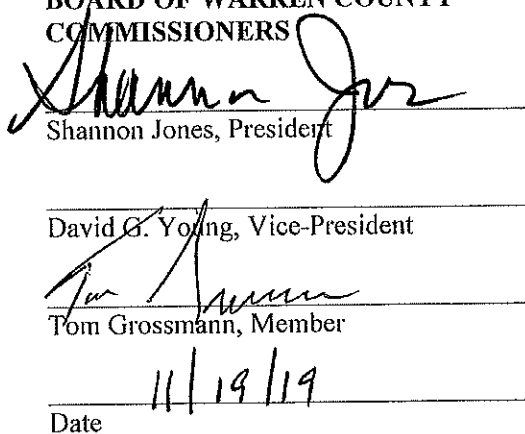 BOARD OF WARREN COUNTY
COMMISSIONERS
Shannon Jones
Shannon Jones, President
David G. Young, Vice-President
Tom
Tom Grossmann, Member
11/19/19
Date